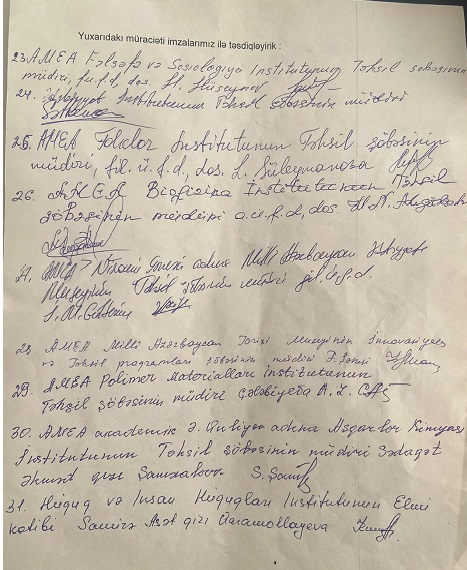 Yuxarıdakı müraciəti imzalarımız ilə təsdiqləyirik :
23. AMEA Fəlsəfə və Sosiologiya İnstitutunun Təhsil şöbəsinin
müdiri, fü.f.d, dos. H. Hüseynov
24. Ədəbiyyat İnstitutunun Təhsil şöbəsinin müdiri
25. AMEA Folklor İnstitutunun Təhsil şöbəsinin
müdiri, fil.ü.f.d., dos. L. Süleymanova
26. AMEA Biofizika İnstitutunun Təhsil
şöbəsinin müdiri ü.f.d, dos.
27. AMEA Nizami Gəncəvi adına Milli Azərbaycan Ədəbiyyatı
Muzeyinin Təhsil şöbəsinin müdiri fil.ü.f.d.
28. AMEA Milli Azərbaycan Tarixi Muzeyinin İnnovasiyalar
və Təhsil proqramları şöbəsinin müdiri
29. AMEA Polimer Materialları institutunun
Təhsil şöbəsinin müdiri Çələbiyeva A. Z.
30. AMEA akademik Ə. Quliyev adına Aşqarlar Kimyası
İnstitutunun Təhsil şöbəsinin müdiri Sədaqət
Əhməd qızı
31. Hüquq və İnsan Hüquqları İnstitutunun Elmi
katibi Samirə Əsəd qızı